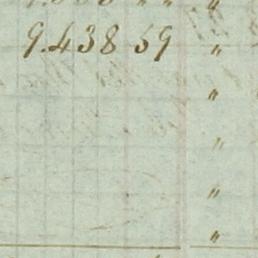 9.438 59 "
"
"
"
"